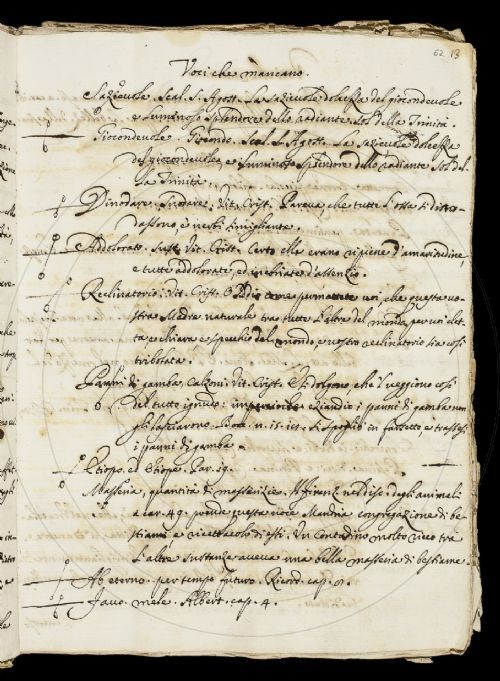 62 13
Voci che mancano.
Sazievole. Scal. S. Agost. La sazievole dolcezza del giocondevole
e luminoso splendore dello radiante Sol della Trinità.
Giocondevole. Giocondo. Scal. S. Agost. La sazievole dolcezza
del giocondevole, e luminoso splendore dello radiante Sol del
la Trinità.
Dinodare. Snodare. Vit. Crist. Pareva, che tutte l'ossa si dino
dassono, e nerbi simigliante.
Addolorato. Sust. Vit. Crist. Certo elle erano ripiene d'amaritudine,
e tutte addolorate, ed inebriate d'assenzio.
Reclinatorio. Vit. Crist. O voi, che questa vo
stra Madre naturale tra tutte l'altre del mondo per voi elet
ta e chiara e specchio del mondo e vostro reclinatorio sia così
tribolata.
Panni di gamba. Calzoni. Vit. Crist. E si dolgono che 'l veggiono così
del tutto ignudo: eziandio i panni di gamba non
gli lasciarono. Bocc. n. 15. Si spogliò in farsetto, e trassesi
i panni di gamba.
Etiopo. ed Etiope. Par. 19.
Masseria, quantità di masserizie. Firenz. nel Disc. degli animali
a car. 49. prende questa voce Mandria congregazione di be
stiami e ricettacolo di essi. Un Contadino molto ricco tra
l'altre sustanze aveva una bella masseria di bestiame.
Ab eterno. per tempo futuro. Ricord. cap.
mele. Albert. cap. 4.